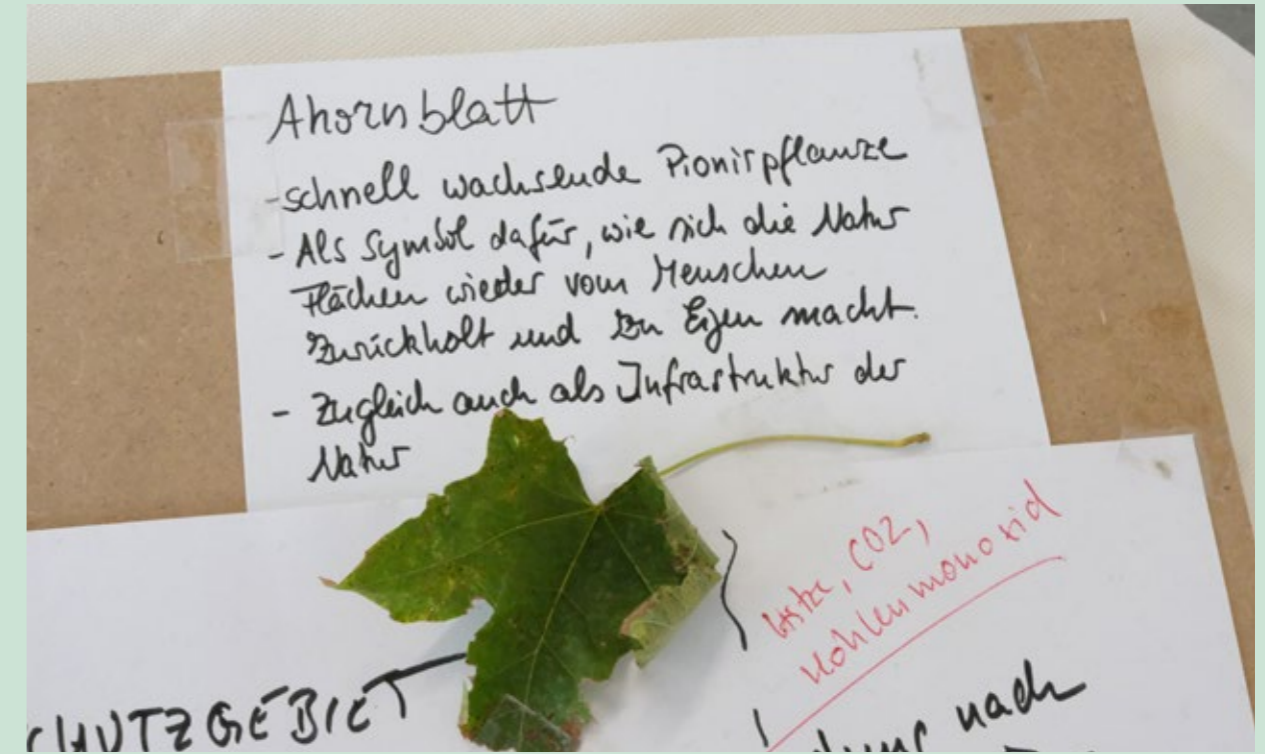 Ahornblatt
- schnell wachsende Pionirpflanze
- Als Symbol dafür, wie sich die Natur
Flächen wieder vom Menschen
Zurückholt und zu Eigen macht.
- Zugleich auch als Infrastruktur der
Natur
Hitze, CO2,
Kohlenmonoxid
CHUTZGEBIET
nach